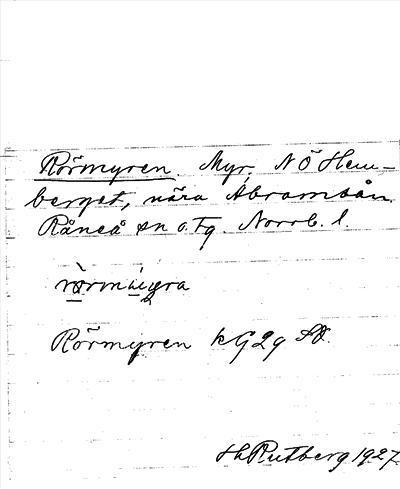 Rörmyren Myr. NÖ Hem-
berget, nära Abramsån
Råneå sn o. Fg. Norrb. l.
Rörmyren kG29 SO.
Hh Rutberg 1927